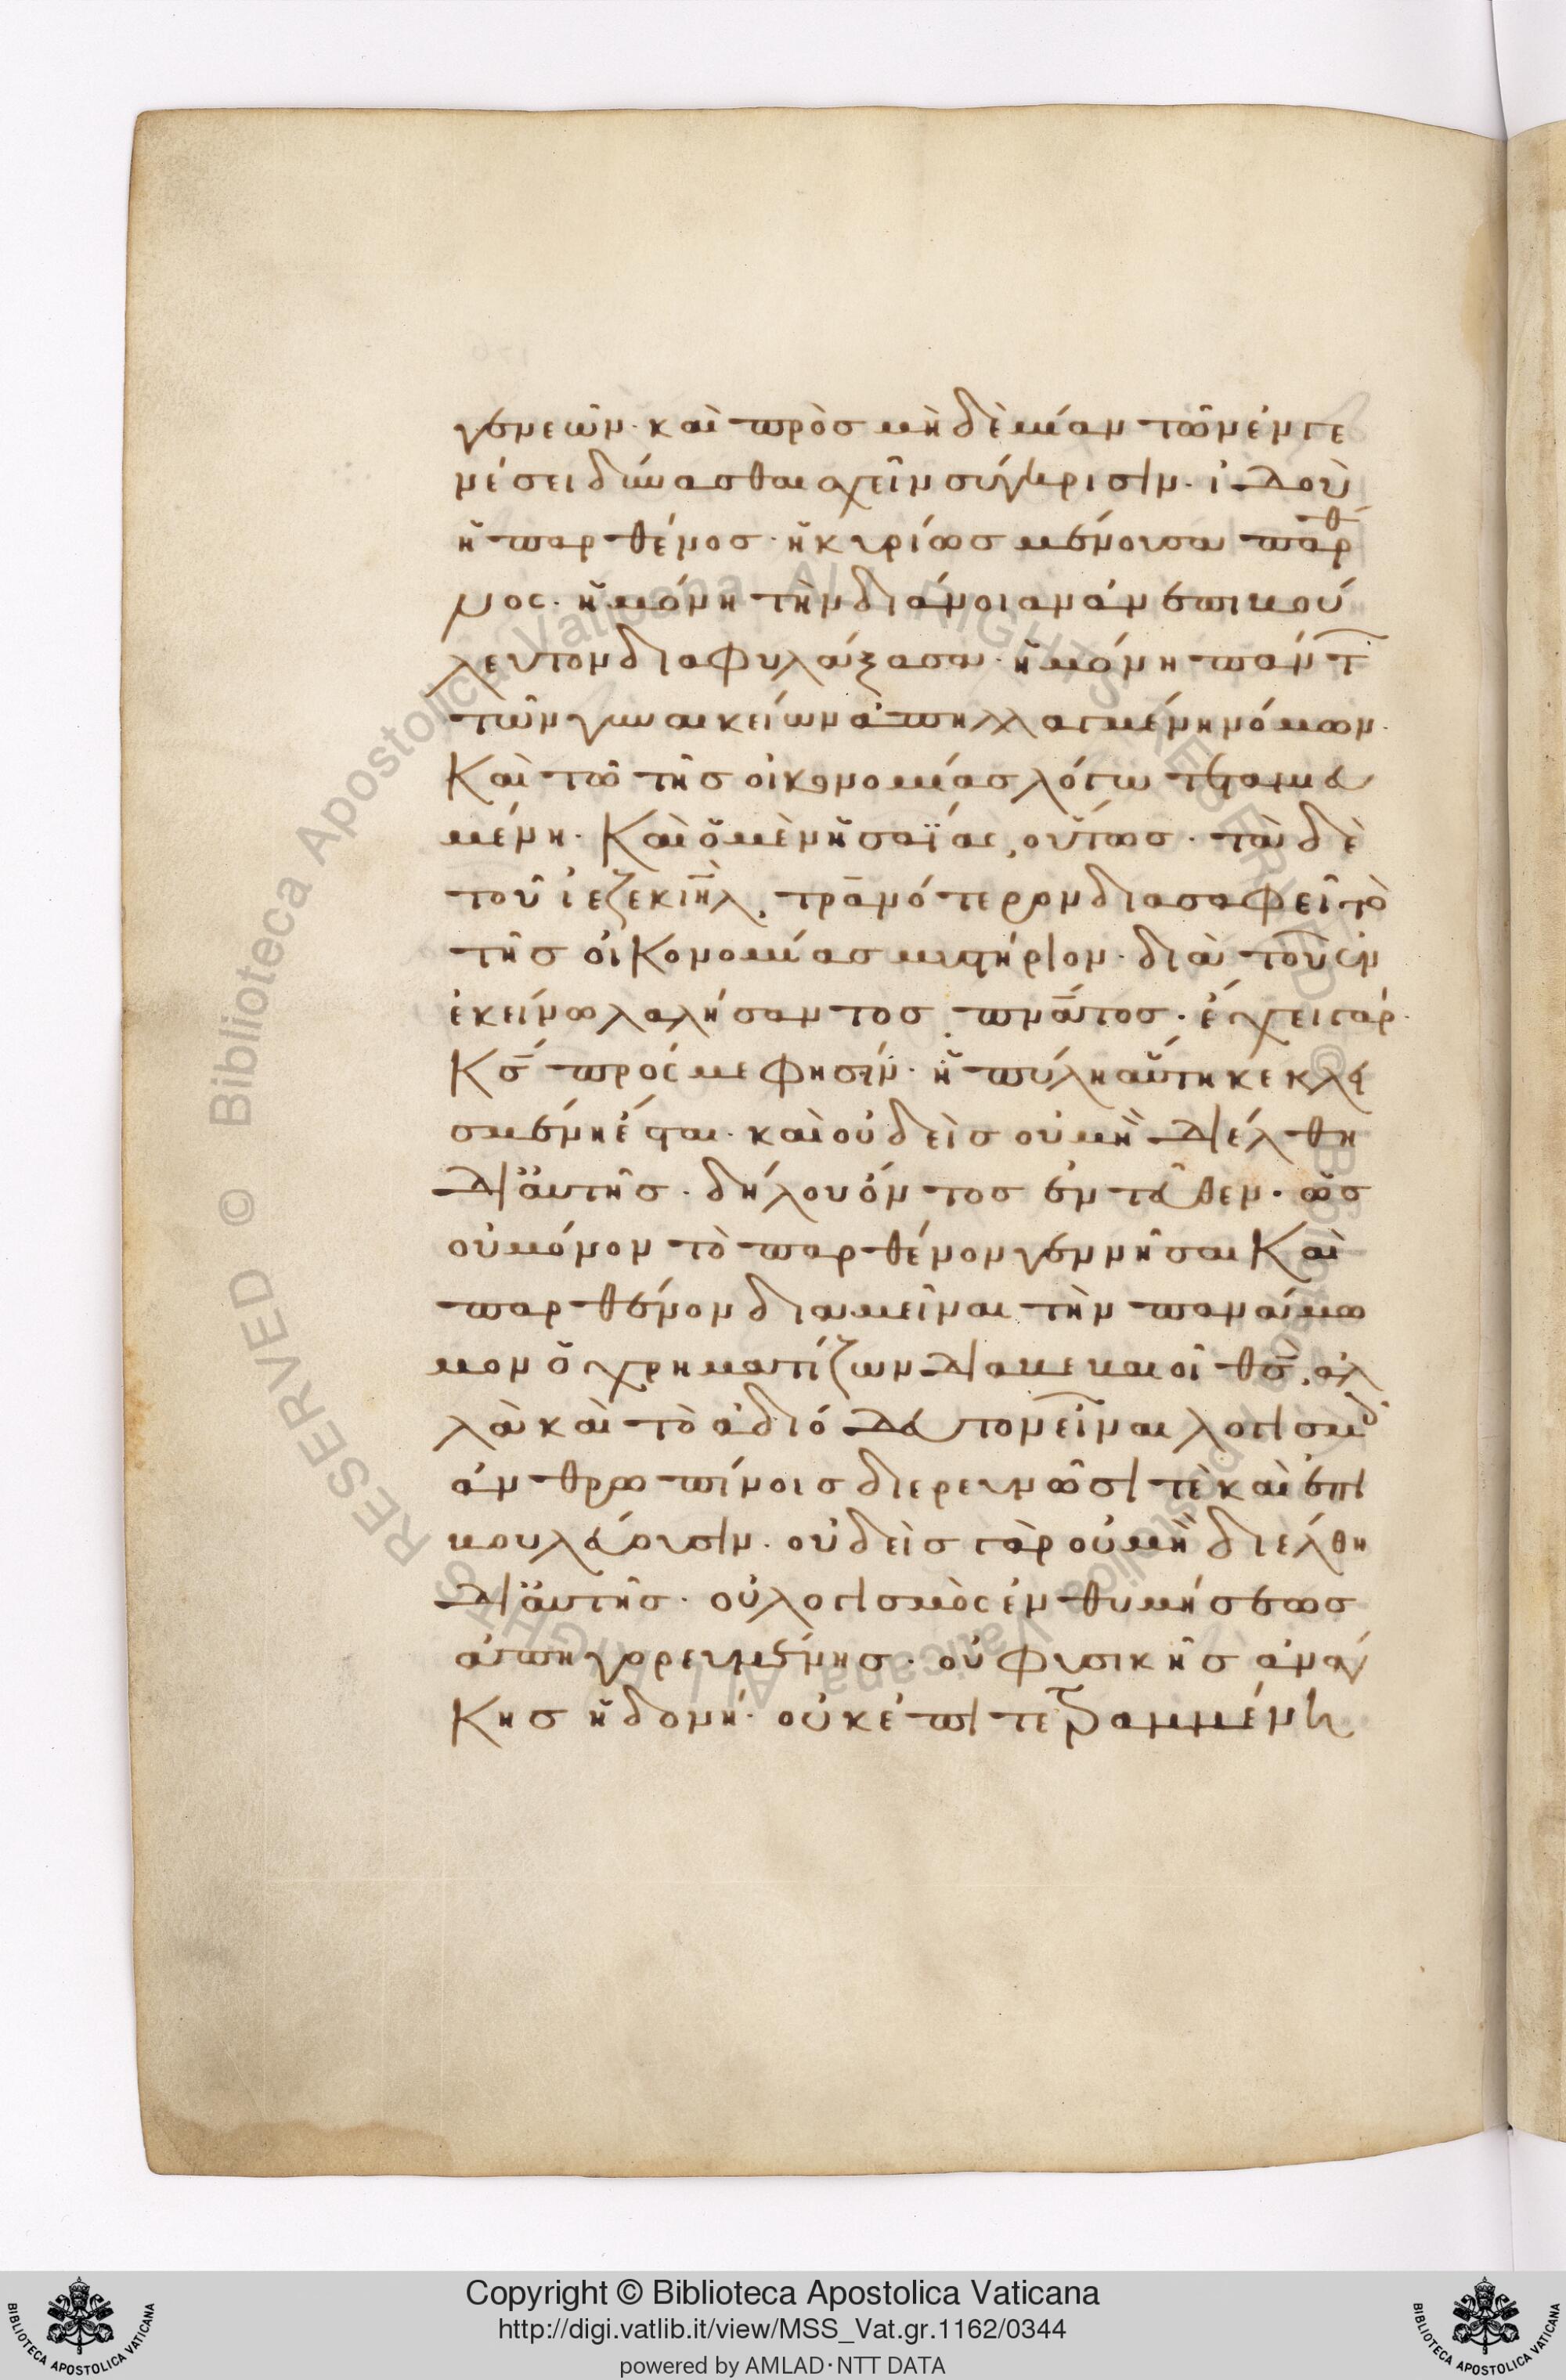 γενεῶν· καὶ πρὸσ μὴδὲμίαν τῶν ἐν γε
νέσει δύνασθαι σχεῖν σύγκρισιν· ἰδοὺ
ἡ παρθένοσ· ἡ κυρίωσ μένουσα παρθέ
νος· ἡ μόνη τὴν διάνοιαν ἀνεπιβού
λευτον διαφυλάξασα· ἡ μόνη πάντ
τῶν γυναικείων ἀπηλλαγμένη νόμων·
Καὶ τῶ τῆσ οἰκονομίασ λόγω τεταμι
μένη· Καὶ ὁ μὲν ἡσαΐας, οὕτωσ· τὰ δὲ
τοῦ ἰεζεκιὴλ, τρανότερον διασαφεῖ τὸ
τῆσ οἰκονομίασ μυστήριον· διὰ τοῦ ἐν
ἐκείνω λαλήσαντοσ πνατοσ· ἔχει γάρ·
Κσ πρός με φησίν· ἡ πύλη αὕτη κεκλει
σμένη ἔσται· καὶ οὐδεὶσ οὐ μὴ διέλθη
δι αὐτῆσ· δηλουόντοσ ἐντεῦθεν· ὡσ
οὐ μόνον τὸ παρθένον γεννῆσαι Καὶ
παρθένον διαμεῖναι τὴν πανάμω
μον ὁ χρηματίζων διακεκαοῖ θσ, ἀλ
λὰ καὶ τὸ ἀδιόδευτον εἶναι λογισμοῖσ
ἀνθρωπίνοισ διερευνῶσι τὲ καὶ ἐπι
βουλεύουσιν· οὐδεὶσ γὰρ οὐ μὴ διέλθη
δι αὐτῆσ· οὐ λογισμὸς ἐνθυμήσεωσ
ἀπηγορευμένησ· οὐ φυσικῆσ ἀνάγ
Κησ ἡδονή· οὐκ ἐπιτεθραμμένη